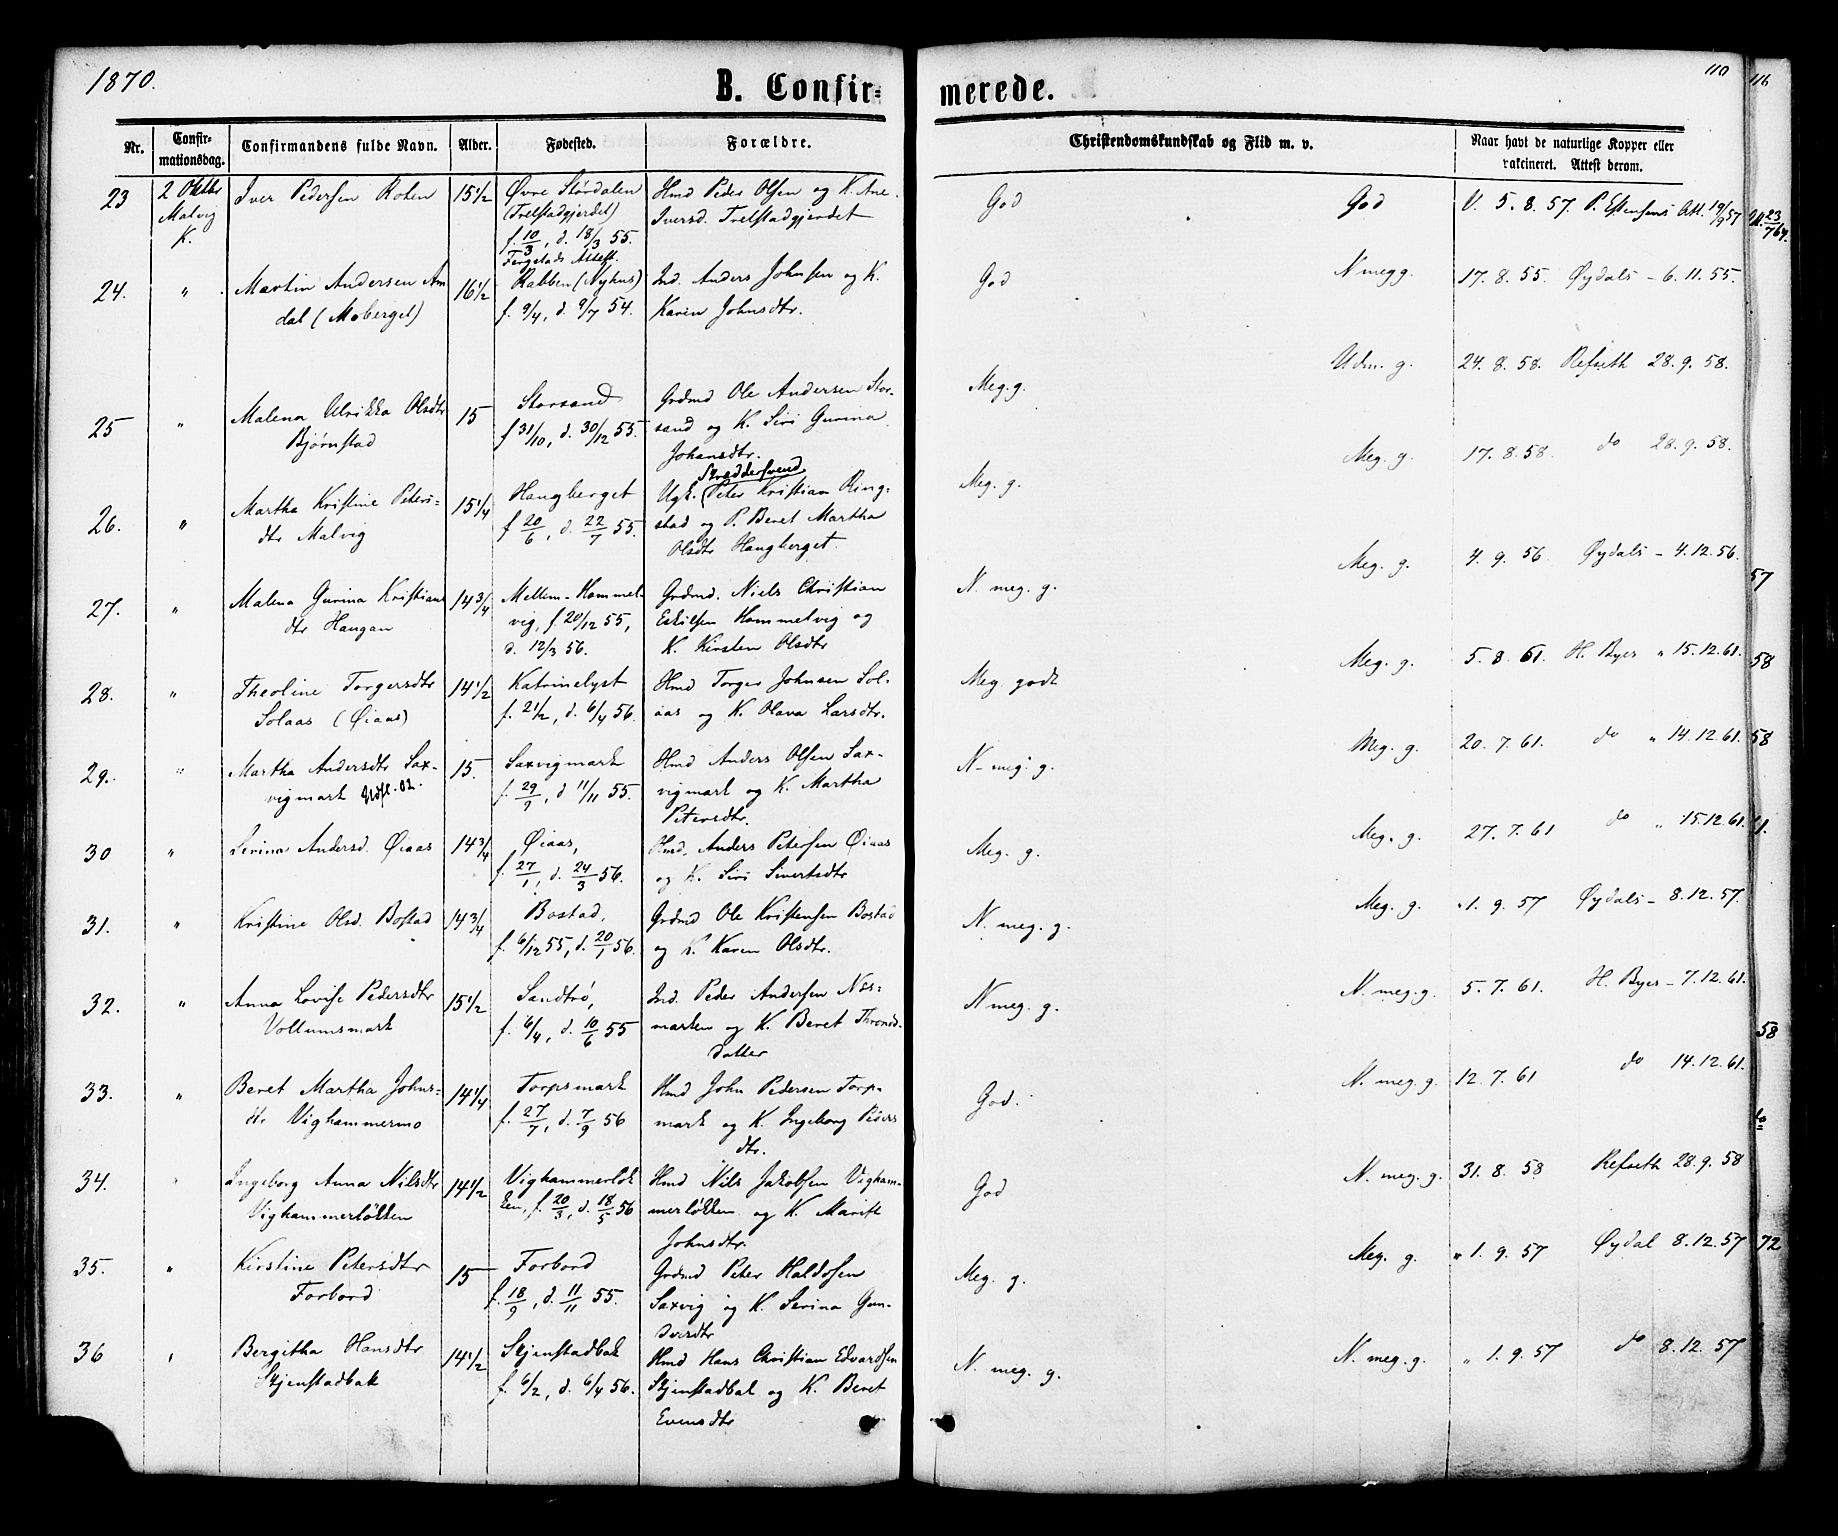 1870.
B. Confir-
merede.
110
116
Nr.
Confir-
mationsdag.
Confirmandens fulde Navn.
Alder.
Fødested.
Forældre.
Christendomskundskab og Flid m. v.
Naar havt de naturlige Kopper eller
vakcineret. Attest derom.
23 2 Oktbr Iver Pedersen Roten 15 1/2 Øvre Størdalen Hmd Peder Olsen og K. Ane God God V. 5. 8. 57. P. Estensens Att. 19/9 57
Malvig (Trelstadgjerdet) Iversd. Trelstadgjerdet
K. f. 10/3, d. 18/3 55.
Fergstads Attest.
24. " Martin Andersen Am 16 1/2 Rabben (Nyhus) Ind. Anders Johnsen og K. God N meg g. 17. 8. 55. Øydals - 6. 11. 55.
dal (Moberget) f. 9/4, d. 9/7 54. Karen Johnsdtr.
25 " Malena Ulrikka Olsdtr 15 Storsand Grdmd Ole Andersen Stor- Meg. g. Udm. g. 24. 8. 58. Refseth 28. 9. 58.
Bjørnstad f 31/10, d. 30/12 55. sand og K. Siri Gurina
Johansdtr.
Skræddersvend
26. " Martha Kristine Peters- 15 1/4 Haugberget Ugk. (Peter Kristian Ring- Meg. g. Meg. g. 17. 8. 58. do 28. 9. 58.
dtr Malvig f 20/6, d. 22/7 55. stad og P. Beret Martha
Olsdtr Haugberget.
27. " Malena Gurina Kristians 14 3/4 Mellem-Hommel- Grdmd. Niels Christian N. meg. g. Meg. g. 4. 9. 56 Øydals - 4. 12. 56. 57
dtr Haugan vig, f. 20/12 55, Eskilsen Hommelvig og
d. 12/3 56. K. Kirsten Olsdtr
28. " Theoline Torgersdtr 14 1/2 Katrinelyst Hmd Torger Johnsen Sol- Meg. godt Meg. g. 5. 8. 61. H. Byes " 15. 12. 61. 58
Solaas (Øiaas) f. 21/2, d. 6/4 56. aas og K. Olava Larsdtr.
29. " Martha Andersdtr Sax- 15. Saxvigmark Hmd Anders Olsen Sax- N- meg. g. Meg. g. 20. 7. 61. do " 14. 12. 61. 58
vigmark Udfl. 02. f. 29/9, d 11/11 55. vigmark og K. Martha
Petersdtr.
30 " Serina Andersd. Øiaas 14 3/4 Øiaas, Hmd. Anders Petersen Øiaas Meg. g. Meg. g. 27. 7. 61 do " 15. 12. 61.
f. 27/1, d. 24/3 56. og K. Siri Sivertsdtr
31. " Kristine Olsd. Bostad 14 3/4 Bostad, Grdmd Ole Kristensen Bostad N. meg. g. Meg. g. " 1. 9. 57 Øydals - 8. 12. 57.
f. 6/12 55, d. 20/1 56. og K. Karen Olsdtr.
32. " Anna Lovise Pedersdtr 15 1/2 Sandtrø, Ind. Peder Andersen Næs- N meg. g. N. meg. g. 5. 7. 61. H. Byes - 7. 12. 61.
Vollumsmark f. 6/4, d. 10/6 55 marken og K. Beret Thronds- 58
datter
33. " Beret Martha Johns- 14 1/4 Torpsmark Hmd John Pedersen Torp- God. N. meg. g. 12. 7. 61 do 14. 12. 61.
dtr Vighammermo f. 27/7, d. 7/9 56 mark og K. Ingeborg Peders do
dtr.
34. " Ingeborg Anna Nilsdtr 14 1/2 Vighammerløk Hmd Nils Jakobsen Vigham- God N. meg. g. 31. 8. 58 Refseth 28. 9. 58
Vighammerløkken ken, f. 20/3, d. 18/5 56 merløkken og K. Marit
Johnsdtr.
35. " Kirstine Petersdtr 15 Forbord Grdmd Peter Haldosen Meg. g. Meg. g. " 1. 9. 57 Øydal 8. 12. 57 72
Forbord f. 18/9, d. 11/11 55. Saxvig og K. Serina Gun-
dersdtr
36 " Bergitha Hansdtr 14 1/2 Stjenstadbak Hmd Hans Christian Edvardsen N. meg. g. N. meg. g. " 1. 9. 57 do 8. 12. 57
Stjenstadbak f. 6/2, d. 6/4 56. Stjenstadbak og K. Beret
Evensdtr